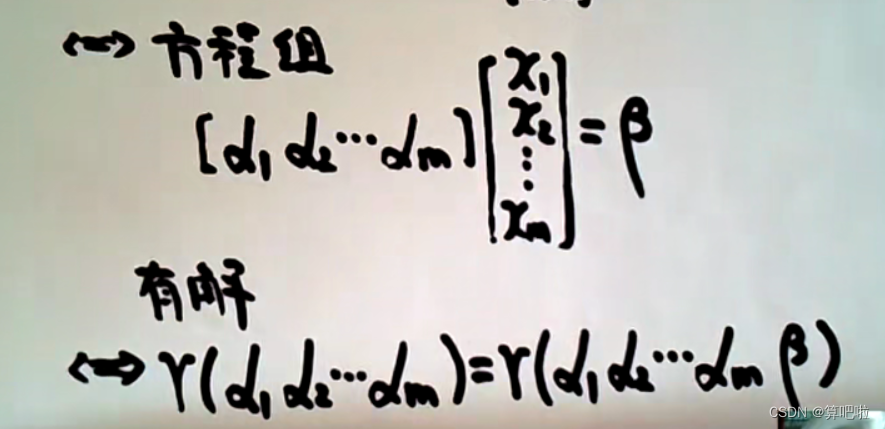 ⟺ 方程组
[α₁ α₂ ⋯ αₘ] [x₁ x₂ ⋮ xₘ] = β
有解
⟺ r(α₁ α₂ ⋯ αₘ) = r(α₁ α₂ ⋯ αₘ β)
CSDN @算吧啦